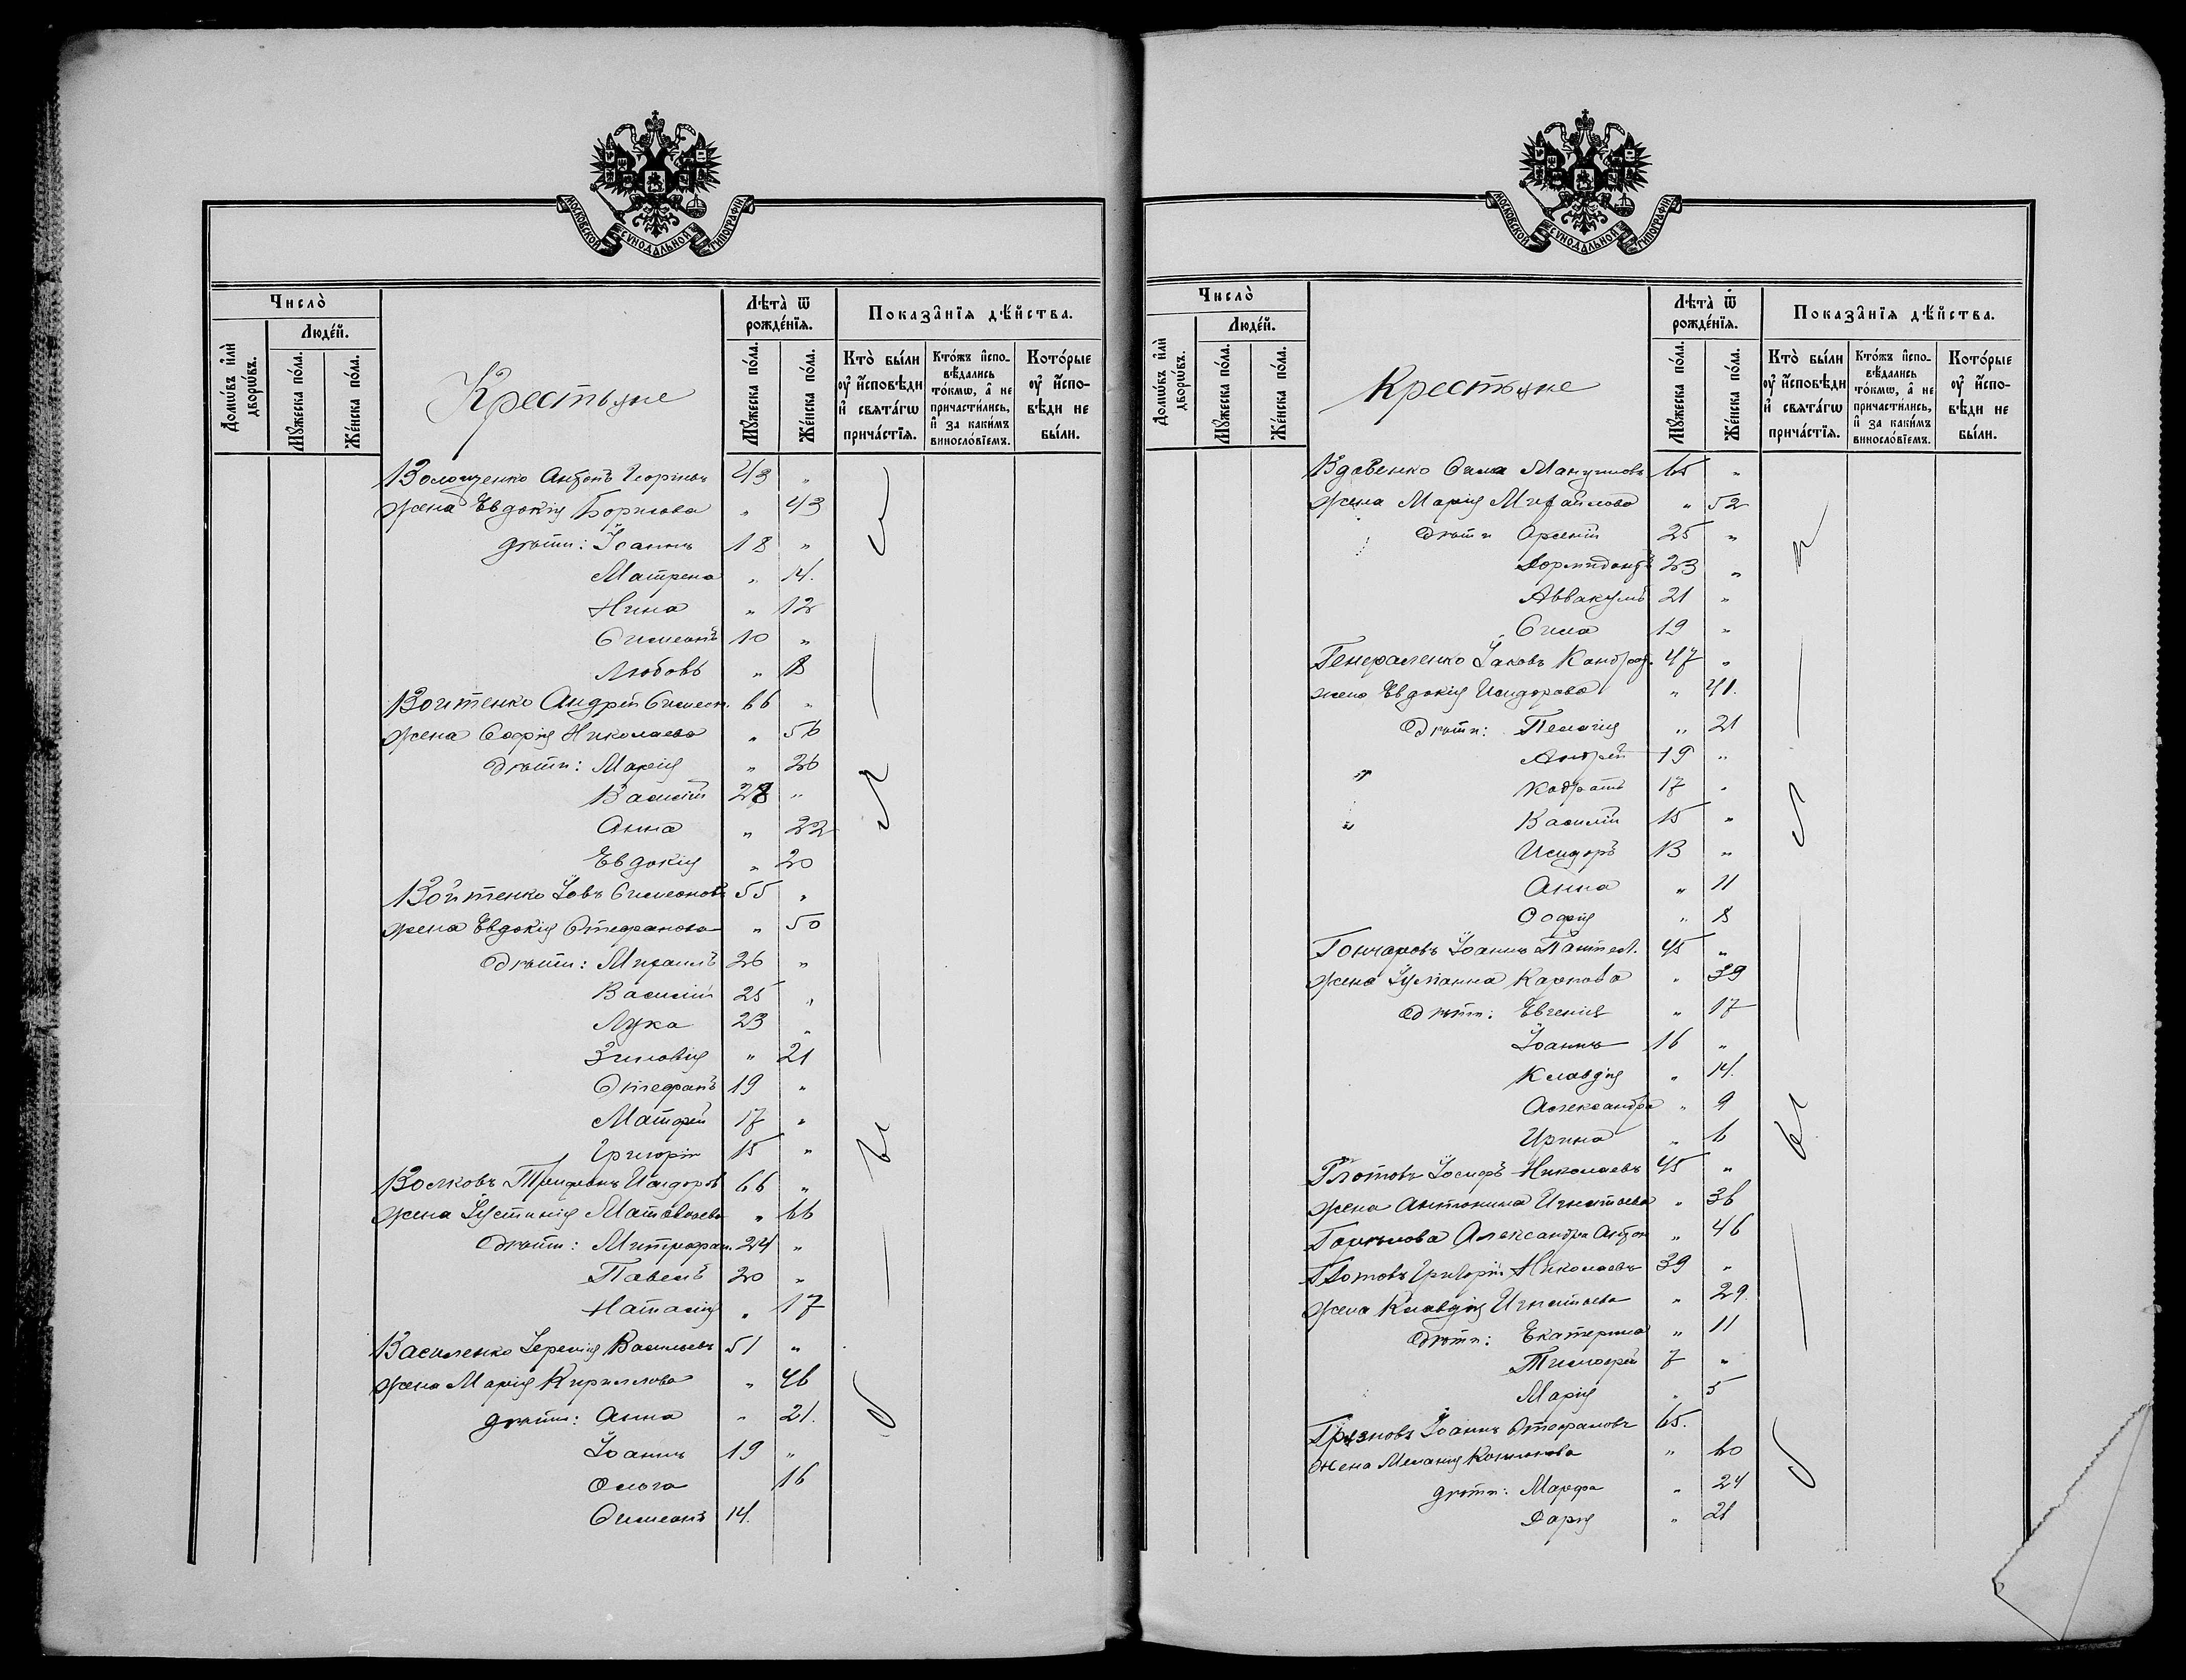 МОСКОВСКОЙ СѴНОДАЛЬНОЙ ТИПОГРАФІИ
Число̀
Людéй.
Домѡ́въ и҆лѝ дворѡ́въ.
Мꙋ́жеска по́ла.
Же́нска по́ла.
Крестьяне
Лѣта̀ ѿ рожде́нїѧ.
Мꙋ́жеска по́ла.
Же́нска по́ла.
Показа̑нїѧ дѣ́йства.
Кто̀ бы́ли оу҆ и҆сповѣди и҆ свѧта́гѡ прича́стїѧ.
Кто́жъ и҆спо-вѣдались то́кмѡ, а҆ не причасти́лись, и҆ за каки́мъ винослóвїемъ.
Кото́рые оу҆ и҆спо-вѣди не бы́ли.
Волощенко Антонъ Георгіевъ 43 "
жена Евдокія Борисова " 43
дѣти: Іоаннъ 18 "
Матрена " 14.
Нина " 12
Симеонъ 10 "
Любовь " 8
Войтенко Андрей Симеон. 66 "
жена Софія Николаева " 56
дѣти: Марія " 26
Василій 28 "
Анна " 22
Евдокія " 20
Войтенко Іовъ Симеоновъ 55 "
жена Евдокія Стефанова " 50
дѣти: Михаилъ 26 "
Василій 25 "
Лука 23 "
Зиновія " 21
Стефанъ 19 "
Матфей 17 "
Григорій 15 "
Волковъ Трифонъ Исидоров 66 "
жена Іустинія Матвѣева " 66
дѣти: Митрофан. 24 "
Павелъ 20 "
Наталія " 17
Василенко Іеремія Васильевъ 51 "
жена Марія Кириллова " 46
дѣти: Анна " 21.
Іоаннъ 19 "
Ольга 16
Симеонъ 14.
МОСКОВСКОЙ СѴНОДАЛЬНОЙ ТИПОГРАФІИ
Число̀
Людéй.
Домѡ́въ и҆лѝ дворѡ́въ.
Мꙋ́жеска по́ла.
Же́нска по́ла.
Крестьяне
Лѣта̀ ѿ рожде́нїѧ.
Мꙋ́жеска по́ла.
Же́нска по́ла.
Показа̑нїѧ дѣ́йства.
Кто̀ бы́ли оу҆ и҆сповѣди и҆ свѧта́гѡ прича́стїѧ.
Кто́жъ и҆спо-вѣдались то́кмѡ, а҆ не причасти́лись, и҆ за каки́мъ винослóвїемъ.
Кото́рые оу҆ и҆спо-вѣди не бы́ли.
Вдовенко Сила Мануиловъ 65 "
жена Марія Михайлова " 52
дѣти Арсеній 25 "
Дормидонтъ 23 "
Аввакумъ 21 "
Сила 19 "
Генераленко Іаковъ Кондрат. 47 "
жена Евдокія Исидорова " 41.
дѣти: Пелагія " 21
Андрей 19 "
Кодратъ 17 "
Василій 15 "
Исидоръ 13 "
Анна " 11
Софія " 8
Гончаровъ Іоаннъ Пантел. 45 "
жена Іуліанна Карпова " 39
дѣти: Евгенія " 17
Іоаннъ 16 "
Клавдія " 14.
Александра " 9
Ирина " 6
Глотовъ Іосифъ Николаевъ 45 "
жена Антонина Игнатьева " 36
Александра Антон " 46
Глотовъ Григорій Николаевъ 39 "
жена Клавдія Игнатьева " 29.
дѣти: Екатерина " 11
Тимофей 7 "
Марія " 5
Грязновъ Іоаннъ Стефановъ 65.
жена Меланія " 60
дѣти: Марфа " 24
Дарія " 21